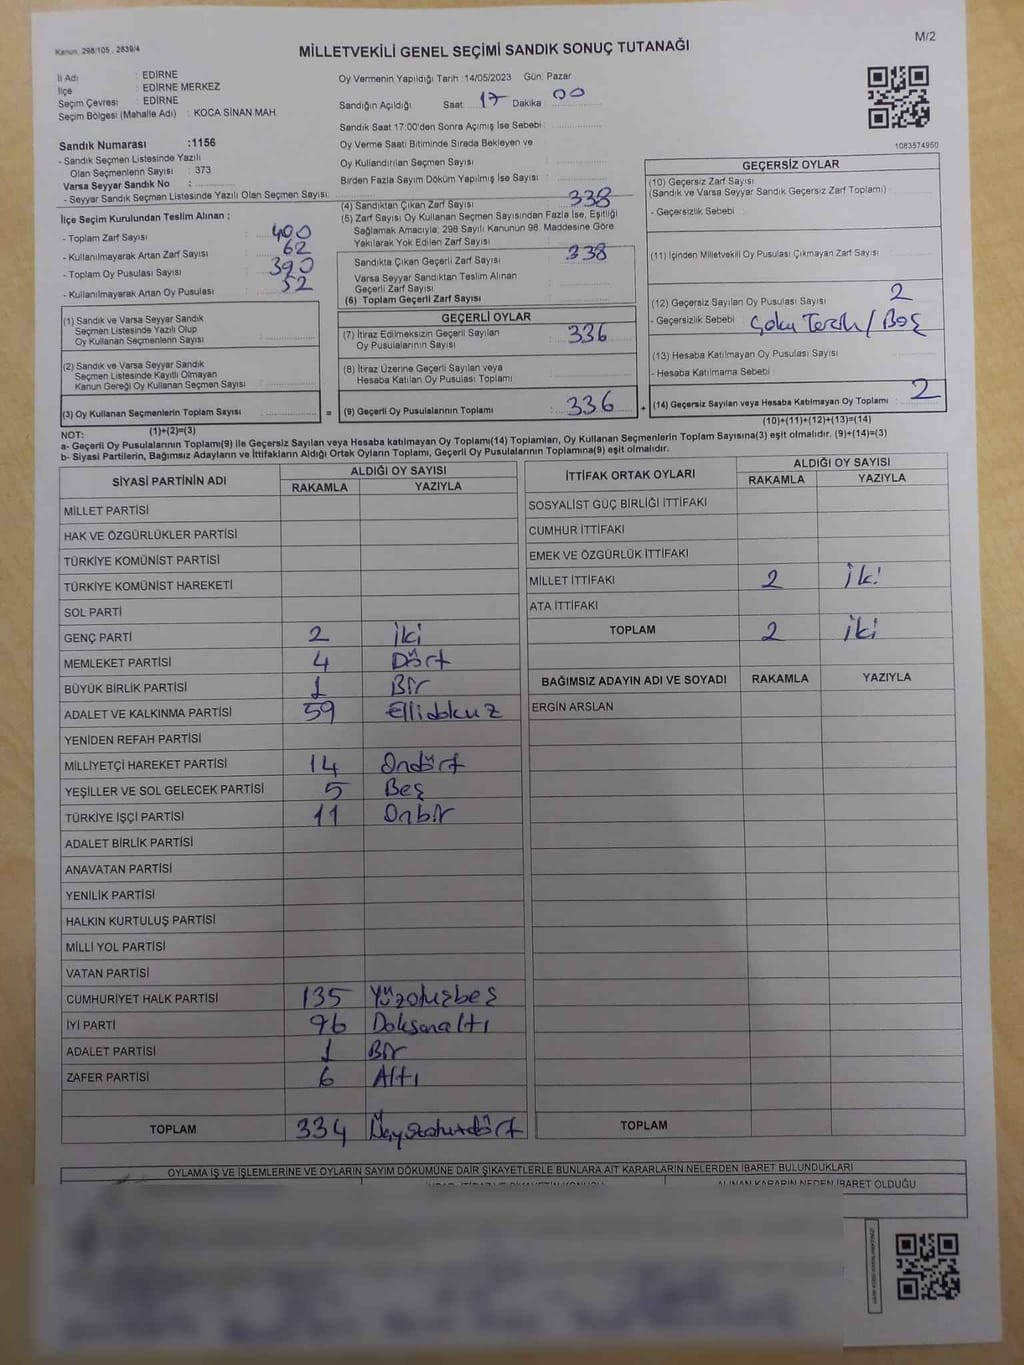 Kanun: 298/105 , 2839/4
MİLLETVEKİLİ GENEL SEÇİMİ SANDIK SONUÇ TUTANAĞI
M/2
İl Adı : EDİRNE
İlçe : EDİRNE MERKEZ
Seçim Çevresi : EDİRNE
Seçim Bölgesi (Mahalle Adı) : KOCA SİNAN MAH.
Sandık Numarası :1156
- Sandık Seçmen Listesinde Yazılı
Olan Seçmenlerin Sayısı : 373
Varsa Seyyar Sandık No :
- Seyyar Sandık Seçmen Listesinde Yazılı Olan Seçmen Sayısı:
İlçe Seçim Kurulundan Teslim Alınan :
- Toplam Zarf Sayısı : 400
- Kullanılmayarak Artan Zarf Sayısı : 62
- Toplam Oy Pusulası Sayısı : 390
- Kullanılmayarak Artan Oy Pusulası : 52
(1) Sandık ve Varsa Seyyar Sandık
Seçmen Listesinde Yazılı Olup
Oy Kullanan Seçmenlerin Sayısı :
(2) Sandık ve Varsa Seyyar Sandık
Seçmen Listesinde Kayıtlı Olmayan
Kanun Gereği Oy Kullanan Seçmen Sayısı :
(3) Oy Kullanan Seçmenlerin Toplam Sayısı :
(1)+(2)=(3)
Oy Vermenin Yapıldığı Tarih :14/05/2023 Gün: Pazar
Sandığın Açıldığı Saat: 17 Dakika : 00
Sandık Saat 17:00'den Sonra Açımış İse Sebebi :
Oy Verme Saati Bitiminde Sırada Bekleyen ve
Oy Kullandırılan Seçmen Sayısı :
Birden Fazla Sayım Döküm Yapılmış İse Sayısı :
(4) Sandıktan Çıkan Zarf Sayısı : 338
(5) Zarf Sayısı Oy Kullanan Seçmen Sayısından Fazla İse, Eşitliği
Sağlamak Amacıyla; 298 Sayılı Kanunun 98. Maddesine Göre
Yakılarak Yok Edilen Zarf Sayısı :
Sandıkta Çıkan Geçerli Zarf Sayısı : 338
Varsa Seyyar Sandıktan Teslim Alınan
Geçerli Zarf Sayısı :
(6) Toplam Geçerli Zarf Sayısı :
GEÇERLİ OYLAR
(7) İtiraz Edilmeksizin Geçerli Sayılan
Oy Pusulalarının Sayısı : 336
(8) İtiraz Üzerine Geçerli Sayılan veya
Hesaba Katılan Oy Pusulası Toplamı :
= (9) Geçerli Oy Pusulalarının Toplamı : 336 +
1083574950
GEÇERSİZ OYLAR
(10) Geçersiz Zarf Sayısı
(Sandık ve Varsa Seyyar Sandık Geçersiz Zarf Toplamı) :
- Geçersizlik Sebebi :
(11) İçinden Milletvekili Oy Pusulası Çıkmayan Zarf Sayısı :
(12) Geçersiz Sayılan Oy Pusulası Sayısı : 2
- Geçersizlik Sebebi : Çoku Tercih/Boş
(13) Hesaba Katılmayan Oy Pusulası Sayısı :
- Hesaba Katılmama Sebebi :
(14) Geçersiz Sayılan veya Hesaba Katılmayan Oy Toplamı : 2
(10)+(11)+(12)+(13)=(14)
NOT:
a- Geçerli Oy Pusulalarının Toplamı(9) ile Geçersiz Sayılan veya Hesaba katılmayan Oy Toplamı(14) Toplamları, Oy Kullanan Seçmenlerin Toplam Sayısına(3) eşit olmalıdır. (9)+(14)=(3)
b- Siyasi Partilerin, Bağımsız Adayların ve İttifakların Aldığı Ortak Oyların Toplamı, Geçerli Oy Pusulalarının Toplamına(9) eşit olmalıdır.
SİYASİ PARTİNİN ADI ALDIĞI OY SAYISI
RAKAMLA YAZIYLA
MİLLET PARTİSİ
HAK VE ÖZGÜRLÜKLER PARTİSİ
TÜRKİYE KOMÜNİST PARTİSİ
TÜRKİYE KOMÜNİST HAREKETİ
SOL PARTİ
GENÇ PARTİ 2 İki
MEMLEKET PARTİSİ 4 Dört
BÜYÜK BİRLİK PARTİSİ 1 Bir
ADALET VE KALKINMA PARTİSİ 59 Ellidokuz
YENİDEN REFAH PARTİSİ
MİLLİYETÇİ HAREKET PARTİSİ 14 Ondört
YEŞİLLER VE SOL GELECEK PARTİSİ 5 Beş
TÜRKİYE İŞÇİ PARTİSİ 11 Onbir
ADALET BİRLİK PARTİSİ
ANAVATAN PARTİSİ
YENİLİK PARTİSİ
HALKIN KURTULUŞ PARTİSİ
MİLLİ YOL PARTİSİ
VATAN PARTİSİ
CUMHURİYET HALK PARTİSİ 135 Yüzotuzbeş
İYİ PARTİ 96 Doksanaltı
ADALET PARTİSİ 1 Bir
ZAFER PARTİSİ 6 Altı
TOPLAM 334 Üçyüzotuzdört
İTTİFAK ORTAK OYLARI ALDIĞI OY SAYISI
RAKAMLA YAZIYLA
SOSYALİST GÜÇ BİRLİĞİ İTTİFAKI
CUMHUR İTTİFAKI
EMEK VE ÖZGÜRLÜK İTTİFAKI
MİLLET İTTİFAKI 2 İki
ATA İTTİFAKI
TOPLAM 2 İki
BAĞIMSIZ ADAYIN ADI VE SOYADI RAKAMLA YAZIYLA
ERGİN ARSLAN
TOPLAM
OYLAMA İŞ VE İŞLEMLERİNE VE OYLARIN SAYIM DÖKÜMÜNE DAİR ŞİKAYETLERLE BUNLARA AİT KARARLARIN NELERDEN İBARET BULUNDUKLARI
ALINAN KARARIN NEDEN İBARET OLDUĞU